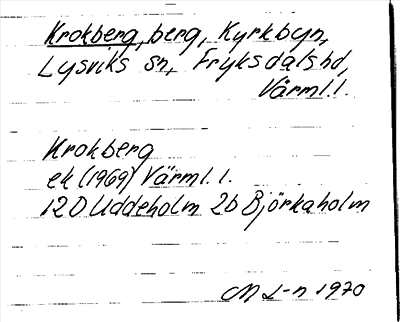 Krokberg, berg, Kyrkbyn,
Lysviks sn, Fryksdals hd,
Värml.l.
Krokberg
ek (1969) Värml.l.
12D Uddeholm 2b Björkaholm
M L-n 1970